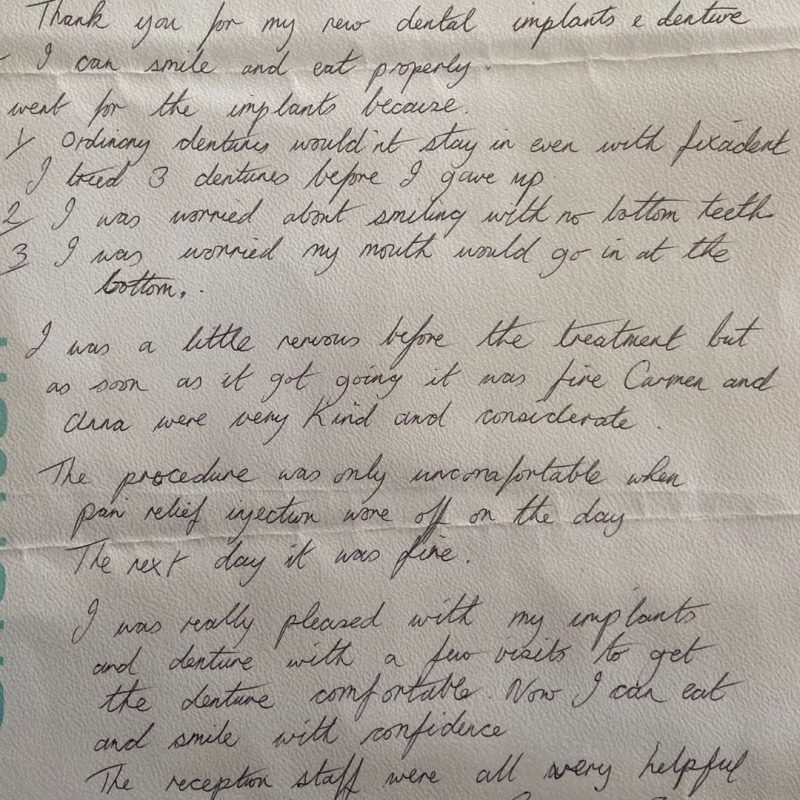 Thank you for my new dental implants & denture
- I can smile and eat properly.
went for the implants because.
1/ Ordinary dentures would'nt stay in even with fixadent
I tried 3 dentures before I gave up
2/ I was worried about smiling with no bottom teeth
3/ I was worried my mouth would go in at the
bottom..
I was a little nervous before the treatment but
as soon as it got going it was fine Carmen and
Anna were very kind and considerate.
The procedure was only uncomfortable when
pain relief injection wore off on the day
The next day it was fine.
I was really pleased with my implants
and denture with a few visits to get
the denture comfortable. Now I can eat
and smile with confidence
The reception staff were all very helpful